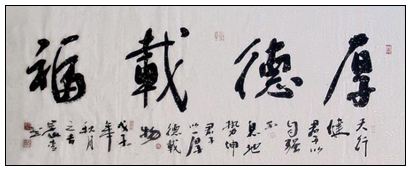 厚德載福
天行
健
君子以
自强
不
息地
势坤
君子
以厚
德載
物
戊子
年
秋月
之吉